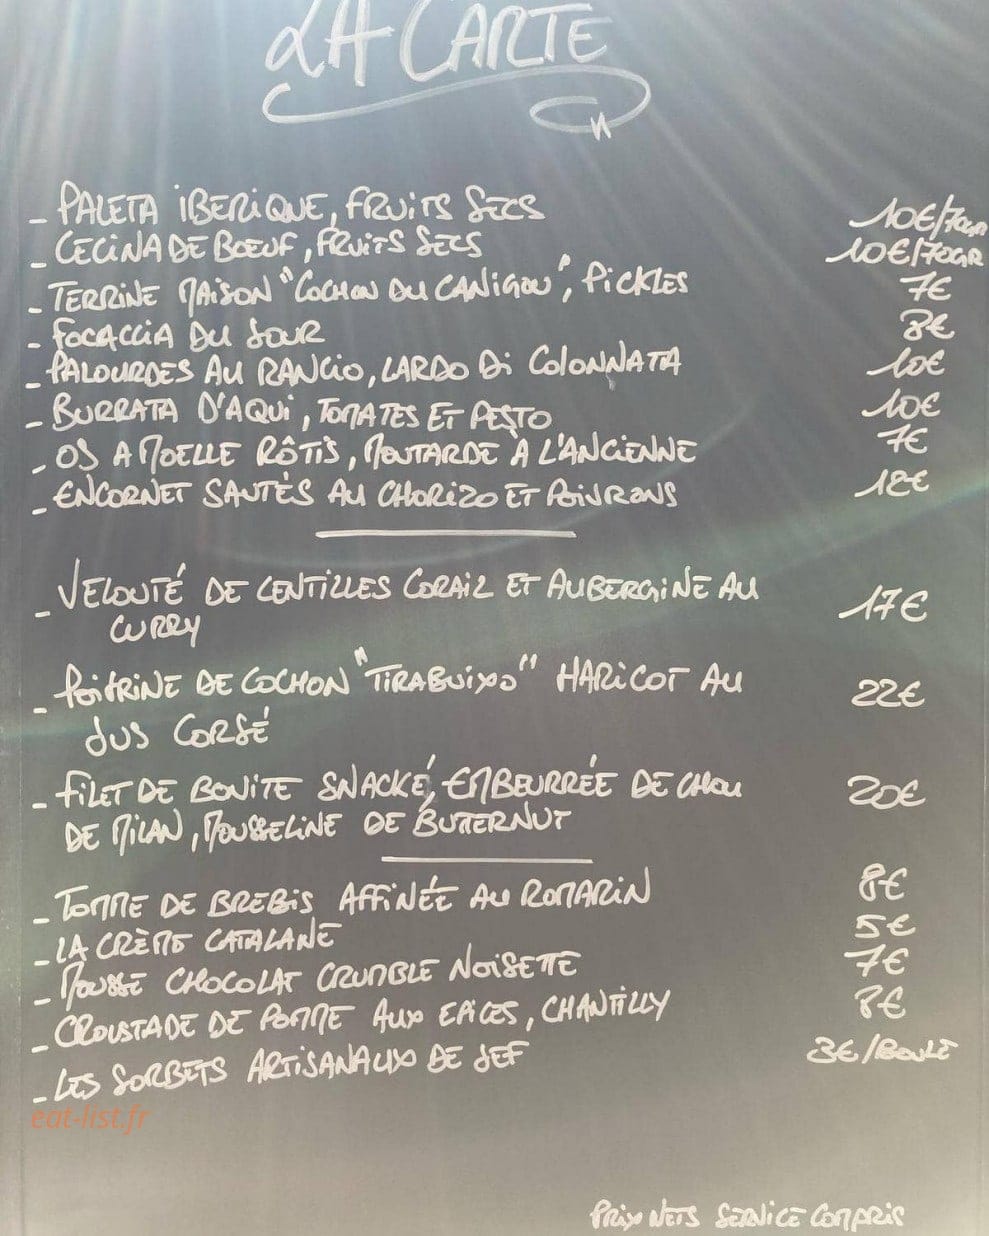 LA CARTE
- PALETA IBERIQUE, FRUITS SECS 10€/70GR
- CECINA DE BOEUF, FRUITS SECS 10€/70GR
- TERRINE MAISON "COCHON DU CANIGOU", PICKLES 7€
- FOCACCIA DU JOUR 8€
- PALOURDES AU RANCIO, LARDO DI COLONNATA 10€
- BURRATA D'AQUI, TOMATES ET PESTO 10€
- OS A MOELLE RÔTIS, MOUTARDE À L'ANCIENNE 7€
- ENCORNET SAUTÉS AU CHORIZO ET POIVRONS 12€
- VELOUTÉ DE LENTILLES CORAIL ET AUBERGINE AU 17€
CURRY
- POITRINE DE COCHON "TIRABUIXO" HARICOT AU 22€
JUS CORSÉ
- FILET DE BONITE SNACKÉ, EMBEURRÉE DE CHOU 20€
DE MILAN, MOUSSELINE DE BUTERNUT
- TOMME DE BREBIS AFFINÉE AU ROMARIN 8€
- LA CRÈME CATALANE 5€
- MOUSSE CHOCOLAT CRUMBLE NOISETTE 7€
- CROUSTADE DE POMME AUX EPICES, CHANTILLY 8€
- LES SORBETS ARTISANAUX DE JEF 3€/BOULE
eat-list.fr
PRIX NETS SERVICE COMPRIS